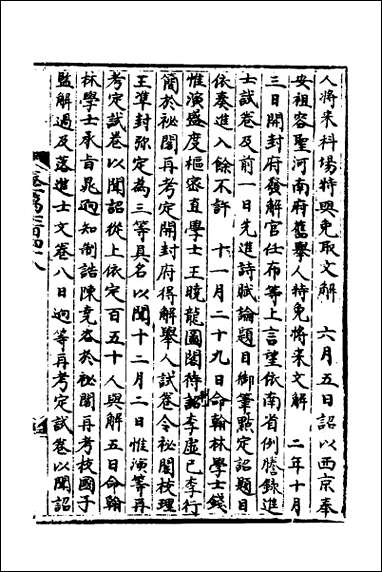 人將来科場特與免取文解　六月五日詔以西京奉
安祖容聖河南府舊舉人特免將来文解　二年十月
三日開封府發解官任布等上言望依南省例謄錄進
士試卷及前一日先進詩賦論題目御筆點定詔題目
依奏進入餘不許　十一月二十九日命翰林學士錢
惟演盛度樞密直學士王曉龍圖閣待制李虛己李行
簡於祕閣再考定開封府得解舉人試卷令祕閣校理
王準封弥定為三等具名以聞十二月二日惟演等再
考定試卷以聞詔從上依定百五十人與解五日命翰
林學士承旨晁迥知制誥陳堯咨於祕閣再考校國子
監解過及落進士文卷八日迥等再考定試卷以聞詔